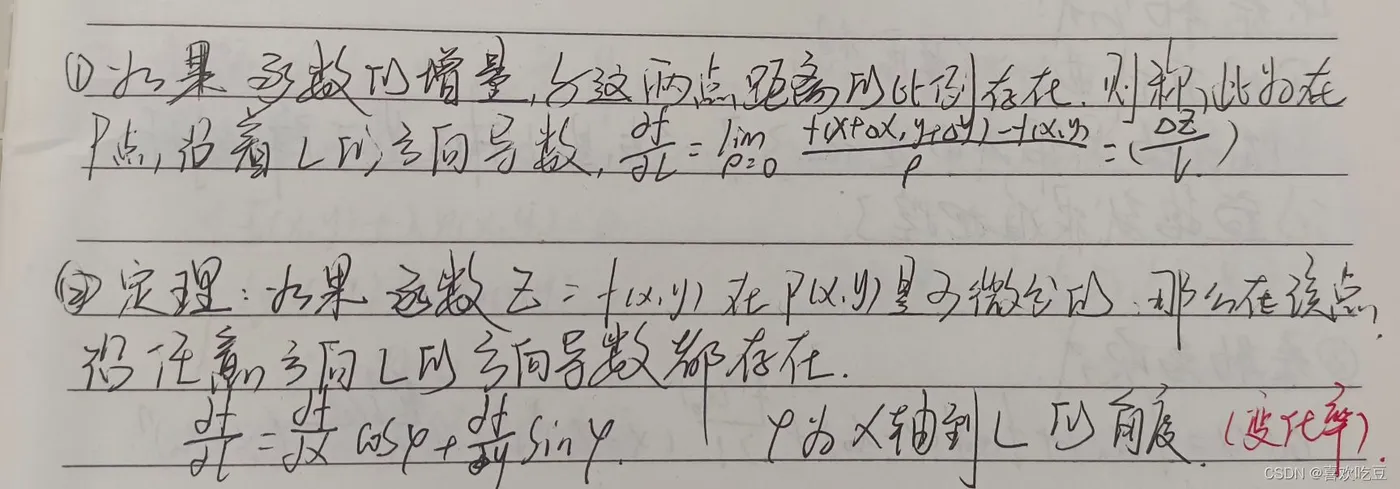 ①如果函数的增量,与这两点距离的比例存在.则称此为在
P点,沿着L的方向导数, ∂f/∂L = lim ρ=0 f(x+Δx,y+Δy)-f(x,y)/ρ =(ΔZ/L)
②定理:如果函数Z=f(x,y)在P(x,y)是可微分的.那么在该点.
沿任意方向L的方向导数都存在.
∂f/∂L = ∂f/∂x cosφ + ∂f/∂y sinφ. φ为X轴到L的角度.(变化率).
CSDN @喜欢吃豆